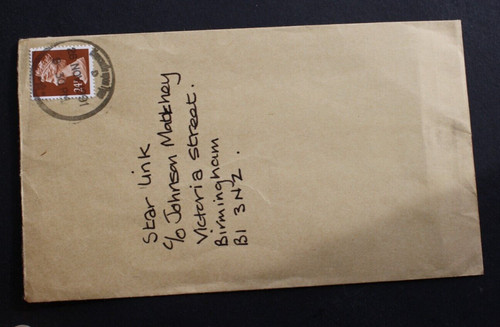 Star Link
c/o Johnson Matthey
Victoria Street.
Birmingham
B1 3NZ.
24